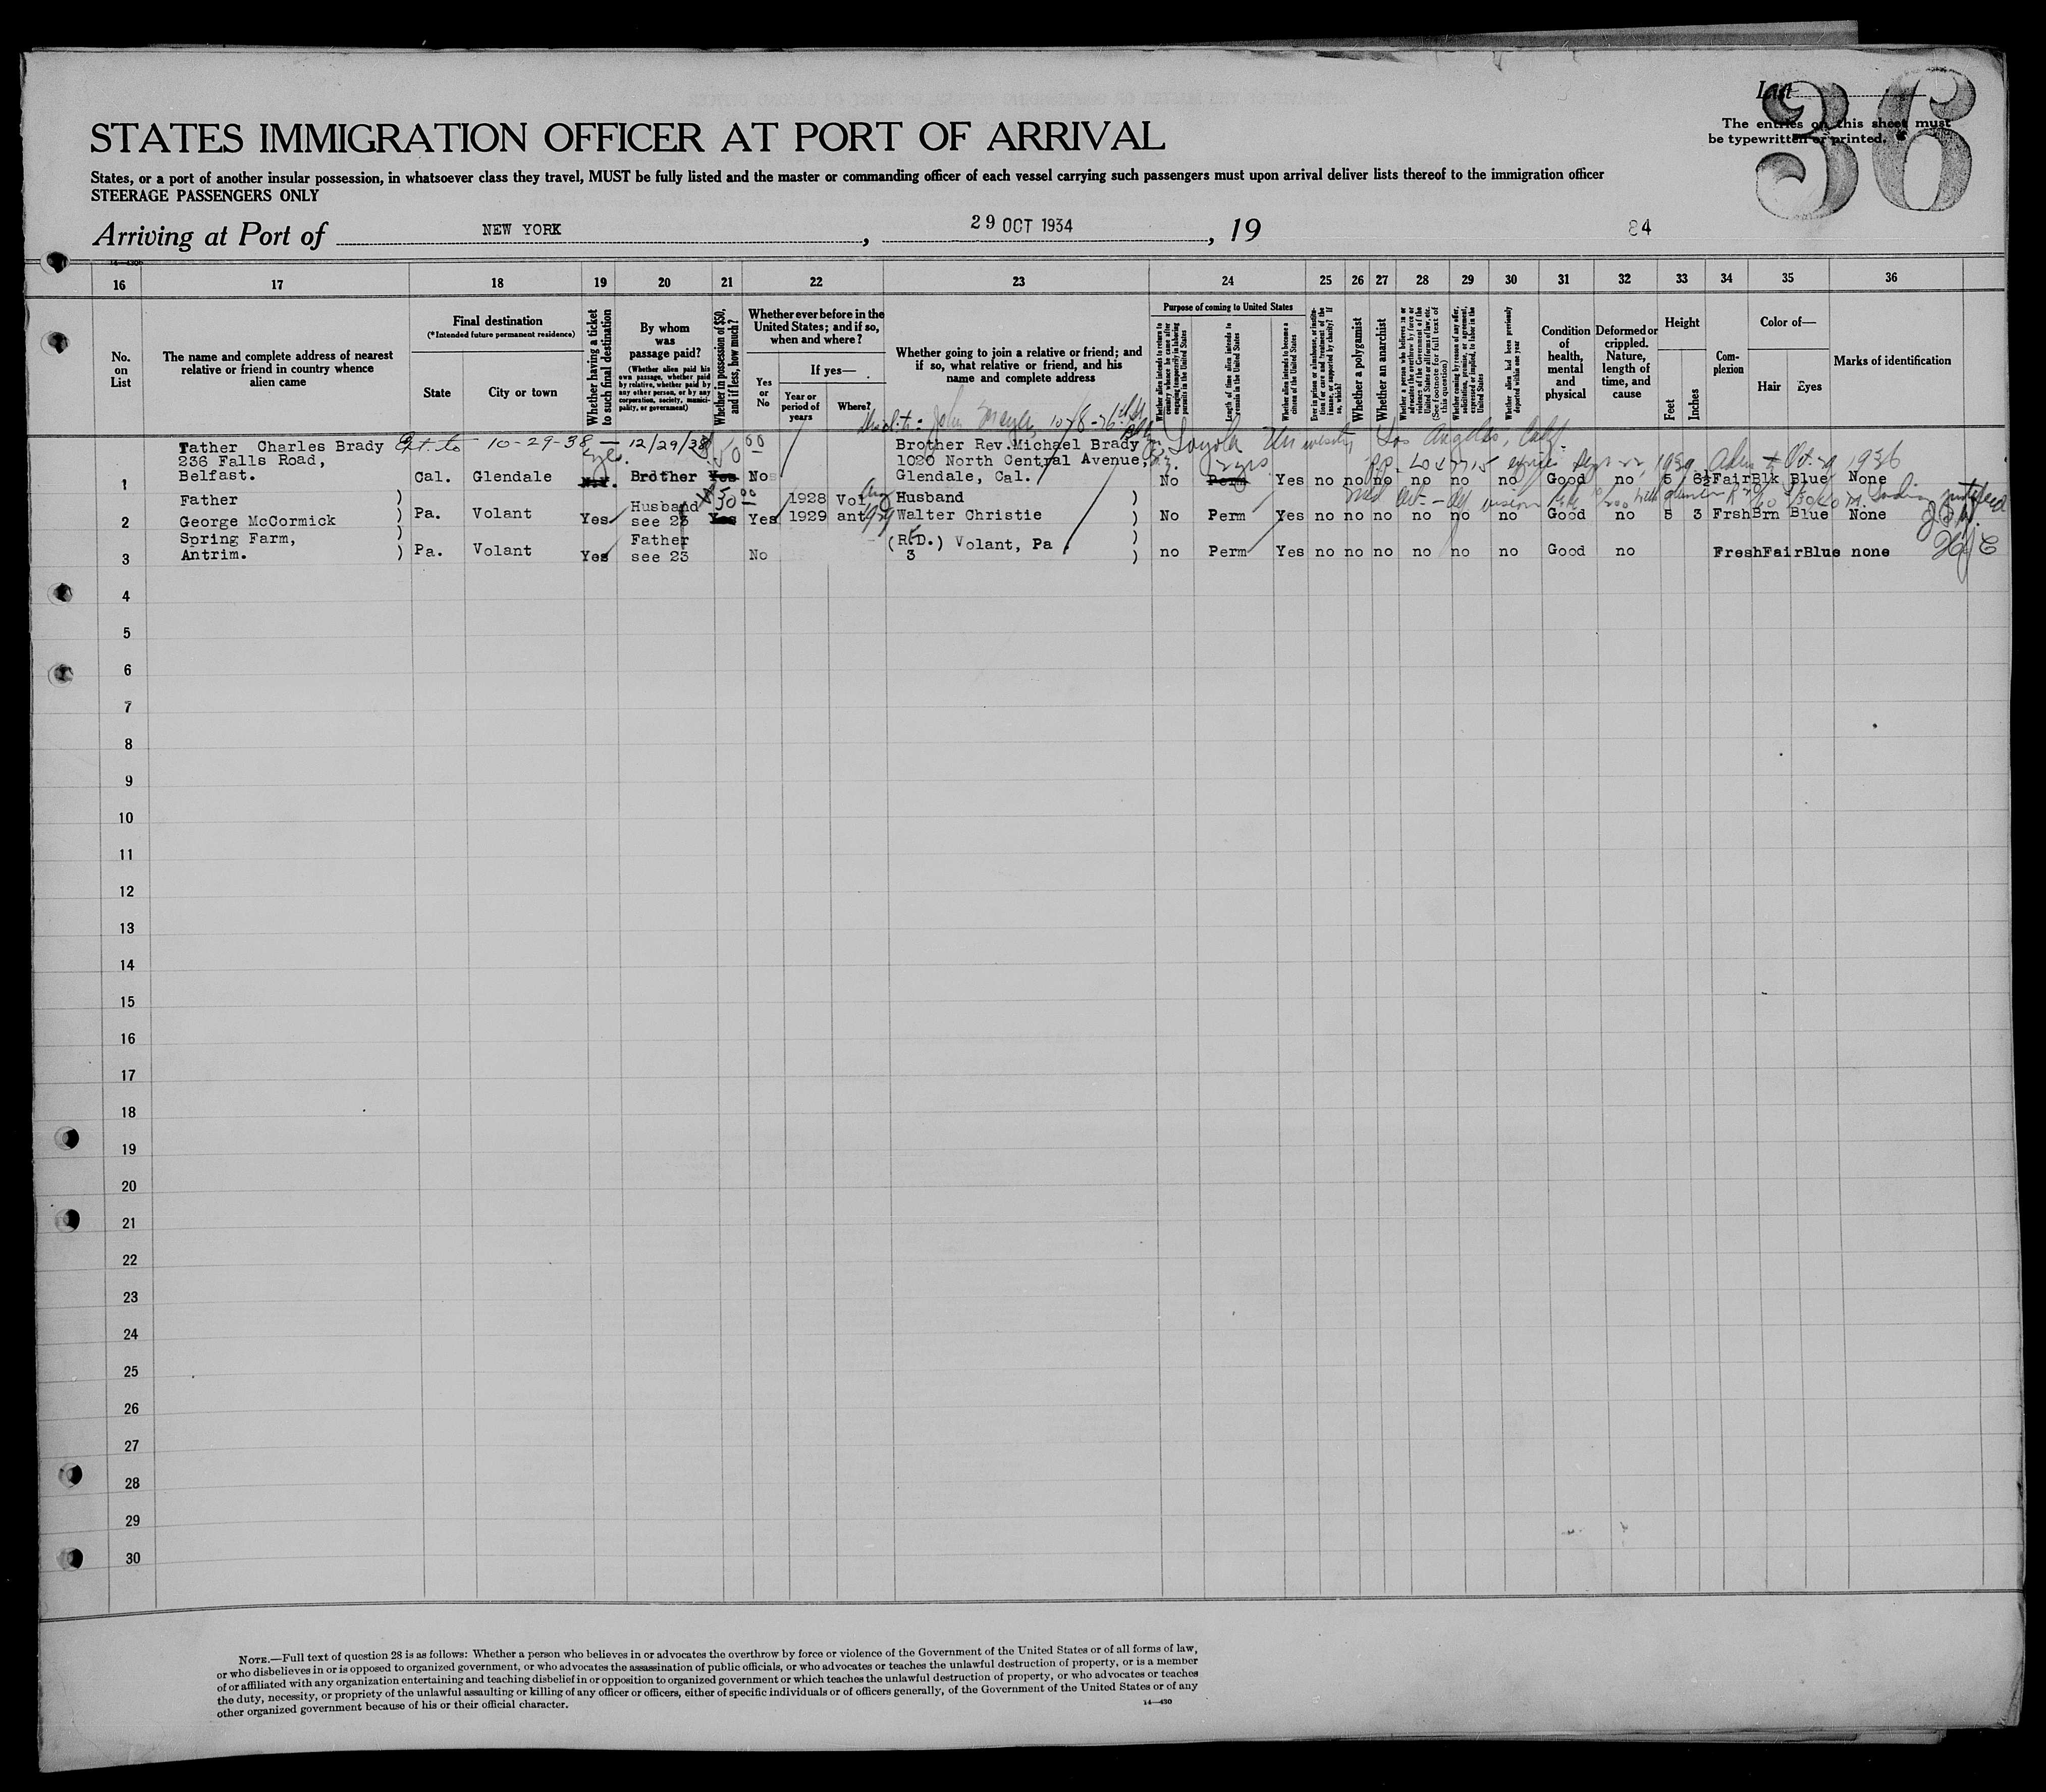 36
List
The entries on this sheet must
be typewritten or printed.
STATES IMMIGRATION OFFICER AT PORT OF ARRIVAL
States, or a port of another insular possession, in whatsoever class they travel, MUST be fully listed and the master or commanding officer of each vessel carrying such passengers must upon arrival deliver lists thereof to the immigration officer
STEERAGE PASSENGERS ONLY
Arriving at Port of NEW YORK, 29 OCT 1934, 19
84
14—430
16 17 18 19 20 21 22 23 24 25 26 27 28 29 30 31 32 33 34 35 36
No.
on
List
The name and complete address of nearest
relative or friend in country whence
alien came
Final destination
(*Intended future permanent residence)
State
City or town
Whether having a ticket
to such final destination
By whom
was
passage paid?
(Whether alien paid his
own passage, whether paid
by relative, whether paid by
any other person, or by any
corporation, society, munici-
pality, or government)
Whether in possession of $50,
and if less, how much?
Whether ever before in the
United States; and if so,
when and where?
Yes
or
No
If yes—
Year or
period of
years
Where?
Whether going to join a relative or friend; and
if so, what relative or friend, and his
name and complete address
Purpose of coming to United States
Whether alien intends to return to
country whence he came after
engaging temporarily in laboring
pursuits in the United States
Length of time alien intends to
remain in the United States
Whether alien intends to become a
citizen of the United States
Ever in prison or almshouse, or institu-
tion for care and treatment of the
insane, or supported by charity? If
so, which?
Whether a polygamist
Whether an anarchist
Whether a person who believes in or
advocates the overthrow by force or
violence of the Government of the
United States or all forms of law, etc.
(See footnote for full text of
this question)
Whether coming by reason of any offer,
solicitation, promise, or agreement,
expressed or implied, to labor in the
United States
Whether alien had been previously
deported within one year
Condition
of
health,
mental
and
physical
Deformed or
crippled.
Nature,
length of
time, and
cause
Height
Feet
Inches
Com-
plexion
Color of—
Hair
Eyes
Marks of identification
Ext. to 10-29-38 — 12/29/38
Loyola University Los Angeles, Calif.
Father Charles Brady
236 Falls Road,
Belfast.
1 Cal. Glendale N.Y. Yes Brother Yes 50 00 No
Brother Rev.Michael Brady
1020 North Central Avenue,
Glendale, Cal.
No Perm 2 yrs Yes no no no no no no Good no 5 6½ Fair Blk Blue None
Father
George McCormick
Spring Farm,
Antrim.
2 Pa. Volant Yes Husband see 23 Yes $50 00 Yes 1928 1929 Volant
Husband
Walter Christie
(R.F.D.) Volant, Pa.
3
No Perm Yes no no no no no no Good no 5 3 Frsh Brn Blue None
3 Pa. Volant Yes Father see 23 No
no Perm Yes no no no no no no Good no Fresh Fair Blue none
4
5
6
7
8
9
10
11
12
13
14
15
16
17
18
19
20
21
22
23
24
25
26
27
28
29
30
NOTE.—Full text of question 28 is as follows: Whether a person who believes in or advocates the overthrow by force or violence of the Government of the United States or of all forms of law,
or who disbelieves in or is opposed to organized government, or who advocates the assassination of public officials, or who advocates or teaches the unlawful destruction of property, or is a member
of or affiliated with any organization entertaining and teaching disbelief in or opposition to organized government or which teaches the unlawful destruction of property, or who advocates or teaches
the duty, necessity, or propriety of the unlawful assaulting or killing of any officer or officers, either of specific individuals or of officers generally, of the Government of the United States or of any
other organized government because of his or their official character.
14—430